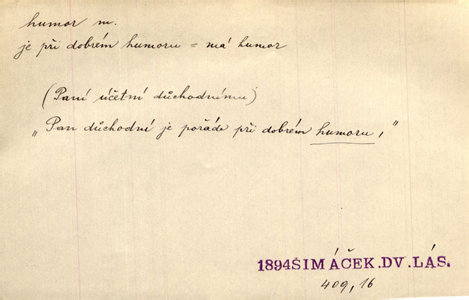 humor m.
je při dobrém humoru = má humor
(Paní účetní důchodnímu)
„Pan důchodní je pořáde při dobrém humoru,"
1894ŠIMÁČEK.DV.LÁS.
409, 16